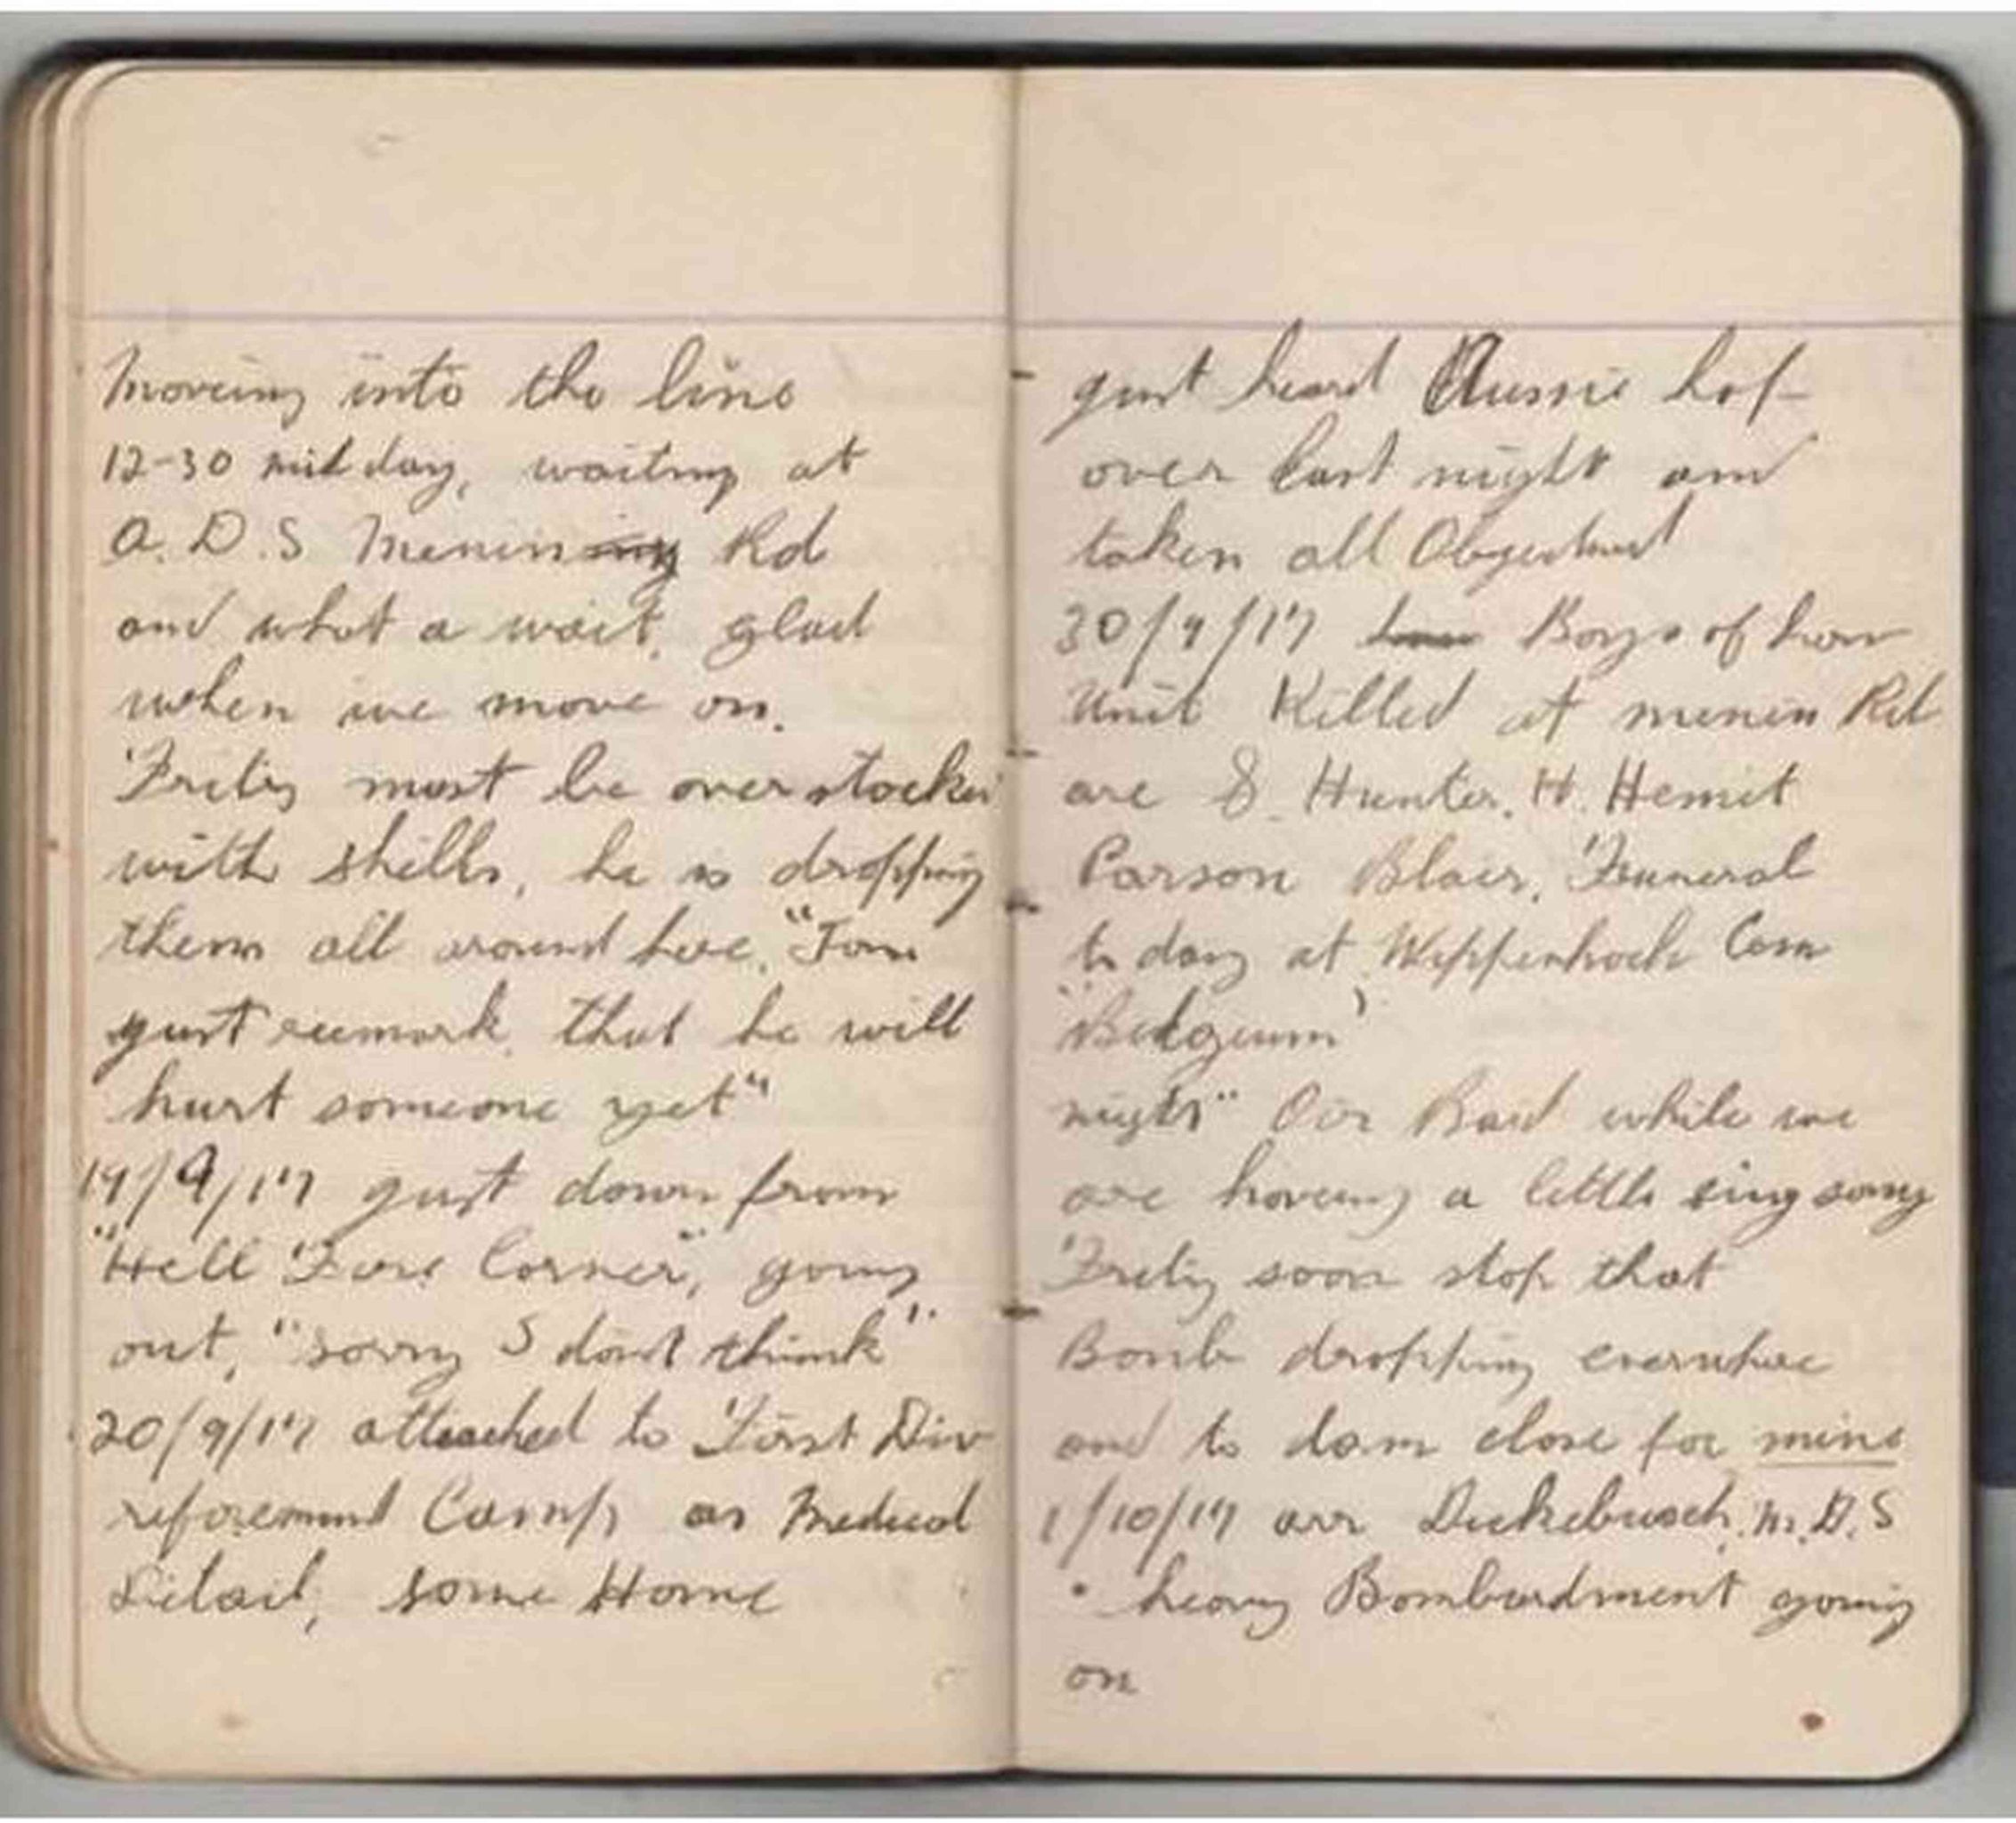 moveing into the line
12-30 mid day, waiting at
A.D.S Menin Rd
and what a wait, glad
when we move on.
Frity must be overstocked
with shells, he is dropping
them all around here, "Tom
just remark, that he will
hurt someone yet"
19/9/17 just down from
"Hell Fire Corner", going
out, "sorry I dont think"
20/9/17 attached to First Div
Camp as Medical
Detail, some Home
just heard Aussie hop
over last night and
taken all
30/9/17 Boys of
Unit Killed at menin Rd
are S. Hunter, H.
Parson Blair, Funeral
to day at Cem
"Belgium"
night" Air Raid while we
are haveing a little sing song
Frity soon stop that
Bomb dropping
and to dam close for mine
1/10/17 arr Dickebusch, M.D.S
heavy Bombardment going
on